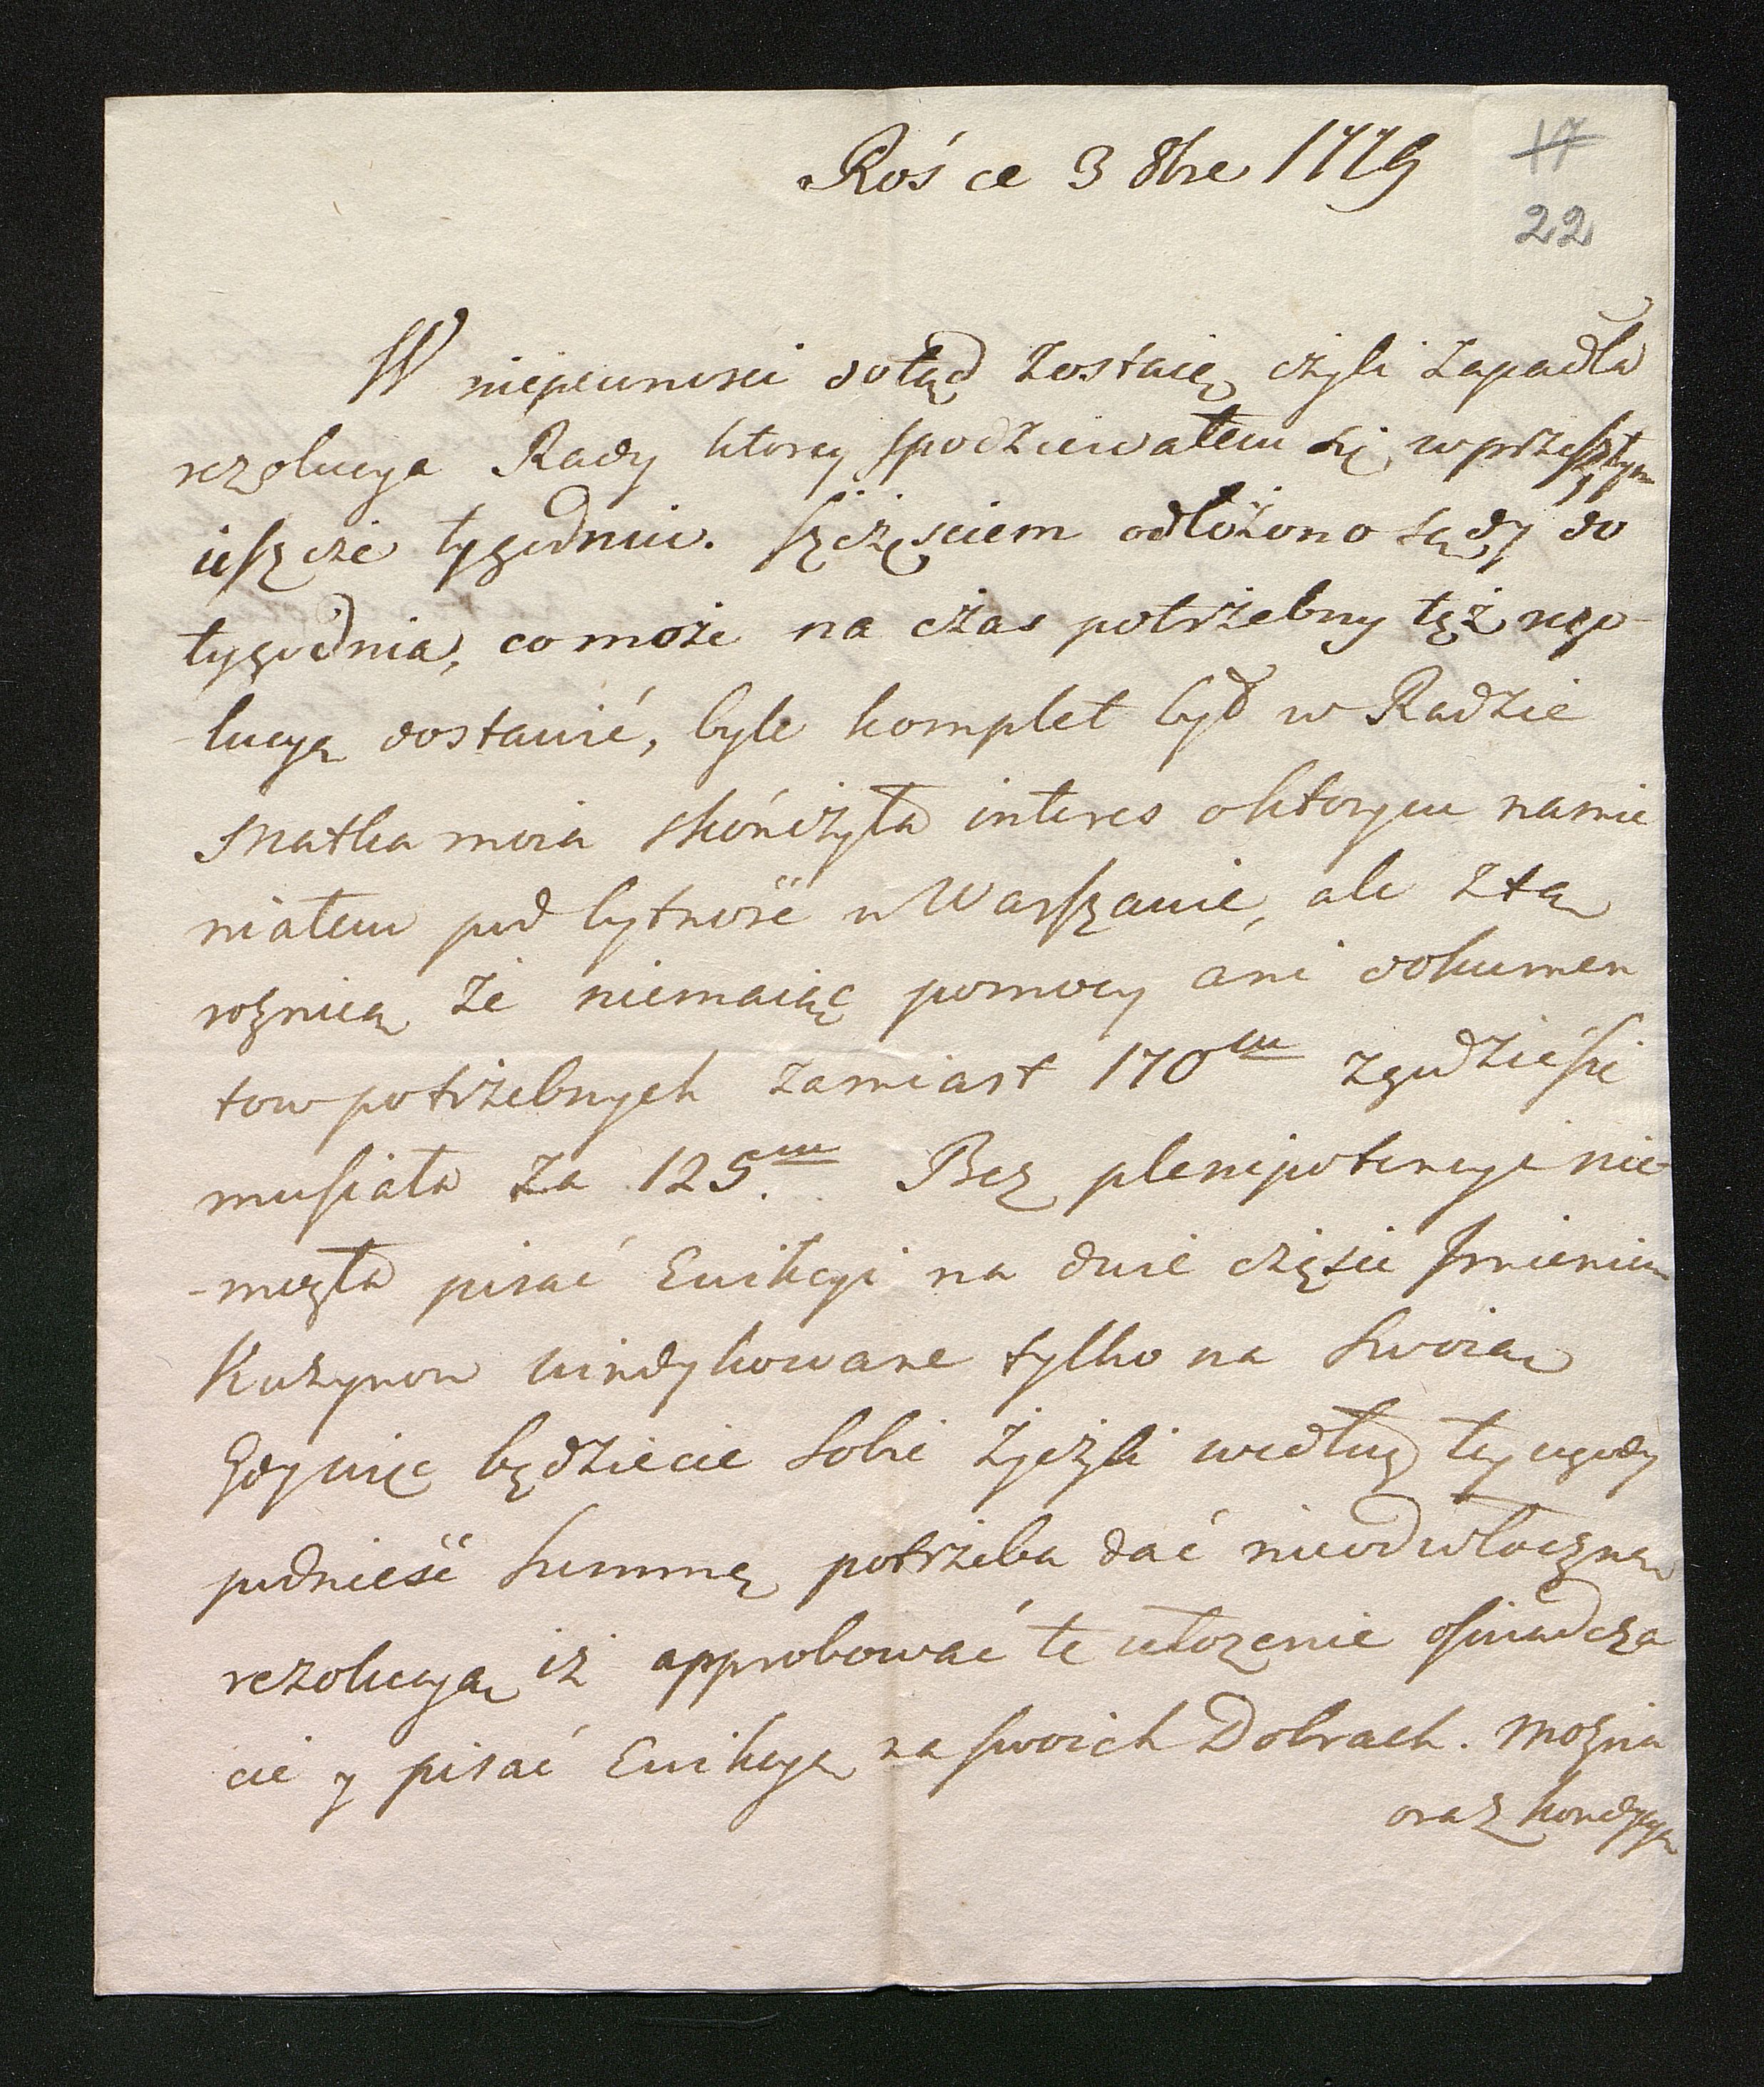 Roś ce 3 8bre 1779
17
22
W niepewnosci dotąd zostaię czyli zapadła
rezolucya Rady ktorey spodziewałem się w przeszłym
ieszcze tygodniu. szczęsciem odłożono sądy do
tygodnia, co może na czas potrzebny tęż rezo-
lucyą dostawić, byle komplet był w Radzie
Matka moia skończyła interes o ktorym namie
niałem pod bytność w Warszawie, ale z tą
roznicą że niemaiąc pomocy ani dokumen
tow potrzebnych zamiast 170 m zgodzić się
musiała za 125 m. Bez plenipotencyi nie
-mogła pisać Ewikcyi na dwie częsci Imieniem
Kuzynow windykowane tylko na swoią
Gdy więc będziecie sobie życzyli według tey ugody
podnieść summę potrzeba dać nieodwłoczną
rezolucyą iż approbować te ułozenie oswiadcza
cie y pisać Ewikcyą na swoich Dobrach. Mozna
oraz kondycyą